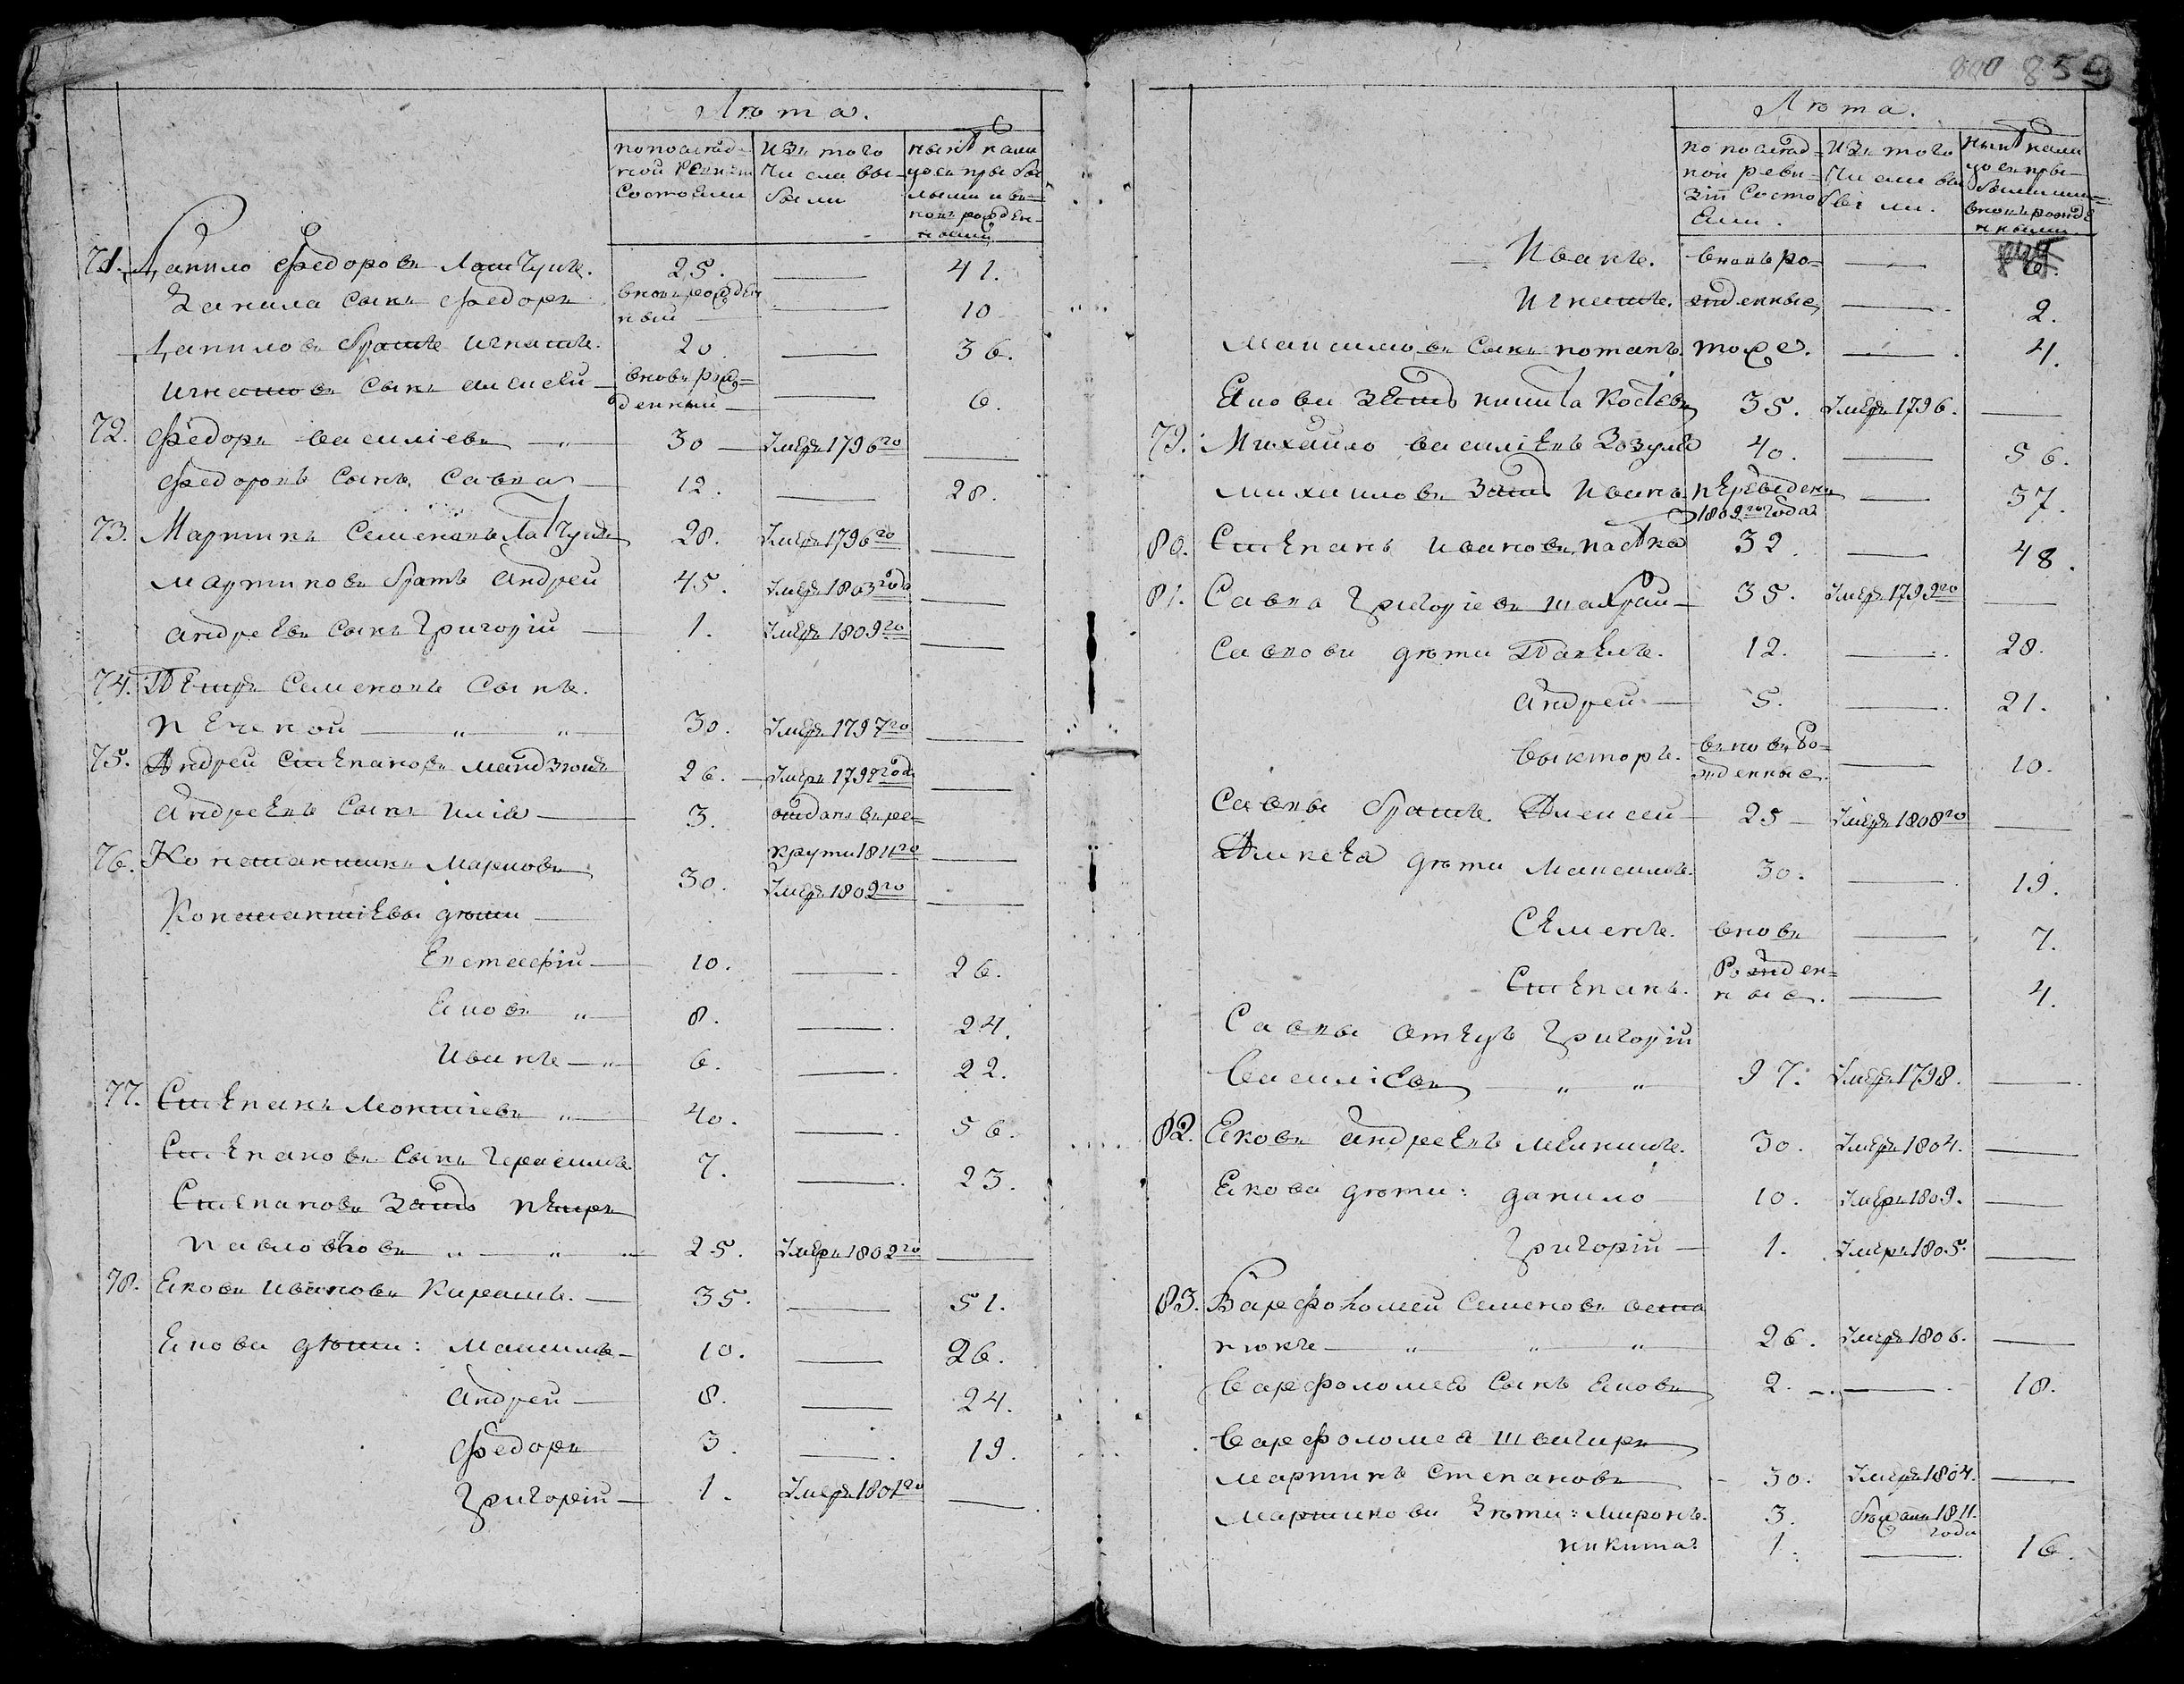 Лѣта.
по послѣд-
ней ревизіи
Состояли
Изъ того
Числа вы-
были
нынѣ нали
цо съ прибы
лыми и въ-
новь рожден-
ными
71. Данило Федоровъ 25. — 41.
Данила Сынъ Федоръ вновь рожден
ный — 10
Даниловъ братъ Игнатъ. 20. — 36.
Игнатовъ Сынъ Алексей — вновь рож=
денный — — 6.
72. Федоръ Василіевъ — " — 30 — Умеръ 1796го —
Федоровъ Сынъ Савка — 12. — 28.
73. Мартинъ Семеновъ 28. Умеръ 1796го —
Мартиновъ братъ Андрей 45. Умеръ 1803года —
Андреевъ Сынъ Григорій — 1. Умеръ 1809го —
74. Петръ Семеновъ Сынъ.
— " — " — 30. Умеръ 1797го —
75. Андрей Степановъ 26. — Умеръ 1798года —
Андреевъ Сынъ Илія — 3. отданъ въ ре=
круты 1811го —
76. Константинъ Марковъ 30. Умеръ 1809го —
Константіевы дѣти —
Евстафій — 10. — 26.
Яковъ " — 8. — 24.
Иванъ — " — 6. — 22.
77. Степанъ " — 40. — 56.
Степановъ Сынъ Герасимъ. 7. — 23.
Степановъ Зять Петръ
" — " — 25. Умеръ 1802го —
78. Яковъ Ивановъ 35. — 51.
Якова дѣти: Максимъ — 10. — 26.
Андрей — 8. — 24.
Федоръ 3. — 19.
Григорій — 1. Умеръ 1801го —
859
Лѣта.
по послѣд=
ней реви=
зіи Состо
яли.
Изъ того
Числа вы
были.
нынѣ нали
цо съ при-
былыми и
вновь рожде
нными.
— Иванъ. вновь ро= — 6.
Игнатъ. жденные — 2.
Максимовъ Сынъ потапъ. тоже. — 4.
Якова Зять никита 35. Умеръ 1796. —
79. Михайло Василіевъ Зозуля 40. — 56.
Михайловъ Зять Иванъ переведенъ
1809го года — 37.
80. Степанъ Ивановъ 32. — 48.
81. Савка Григоріевъ — 35. Умеръ 1799го —
Савкови дѣти Данилъ. 12. — 28.
Андрей — 5. — 21.
Выкторъ. вновь Ро=
жденные. — 10.
Савкы братъ Алексей — 25 — Умеръ 1808го —
Алексея дѣти Максимъ. 30. — 19.
Семенъ. вновь — 7.
Степанъ. Рожден=
ные. — 4.
Савкы отецъ Григорій
Василіевъ — " " 97. Умеръ 1798. —
82. Яковъ Андреевъ 30. Умеръ 1804. —
Якова дѣти: данило — 10. Умеръ 1809. —
Григорій — 1. Умеръ 1805. —
83. Варфоломей Семеновъ
— " " " 26. Умеръ 1806. —
Варфоломея Сынъ Яковъ 2. — 18.
Варфоломея швагиръ
Мартинъ Степановъ 30. Умеръ 1804. —
Мартинови дѣти: Миронъ. 3. 1811.
года
никита 1. — 16.